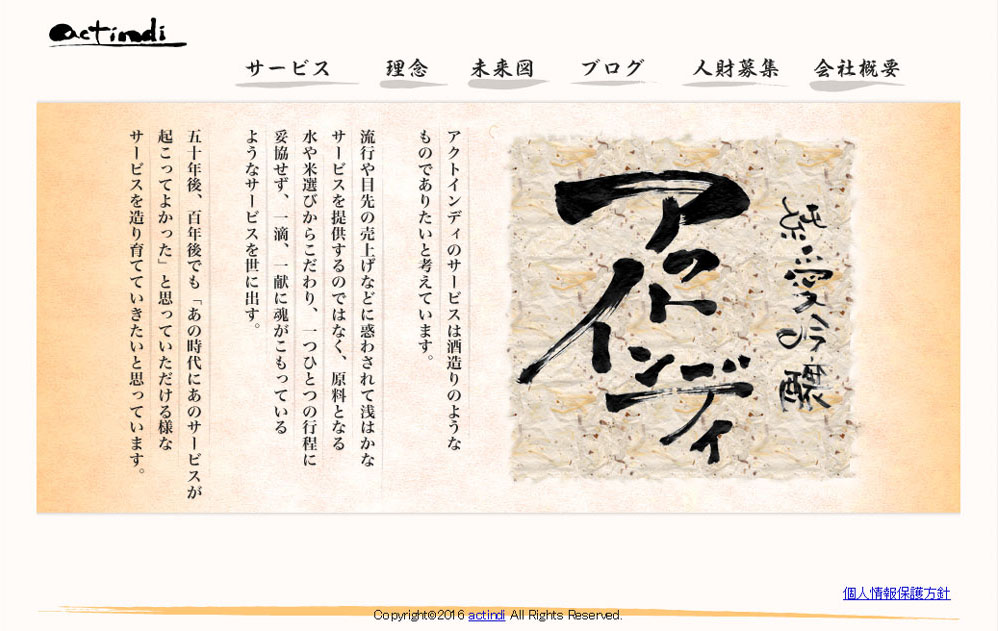 actindi
サービス
理念
未来図
ブログ
人財募集
会社概要
アクトインディ
アクトインディのサービスは酒造りのような
ものでありたいと考えています。
流行や目先の売上げなどに惑わされて浅はかな
サービスを提供するのではなく、原料となる
水や米選びからこだわり、一つひとつの行程に
妥協せず、一滴、一献に魂がこもっている
ようなサービスを世に出す。
五十年後、百年後でも「あの時代にあのサービスが
起こってよかった」と思っていただける様な
サービスを造り育てていきたいと思っています。
個人情報保護方針
Copyright©2016 actindi All Rights Reserved.